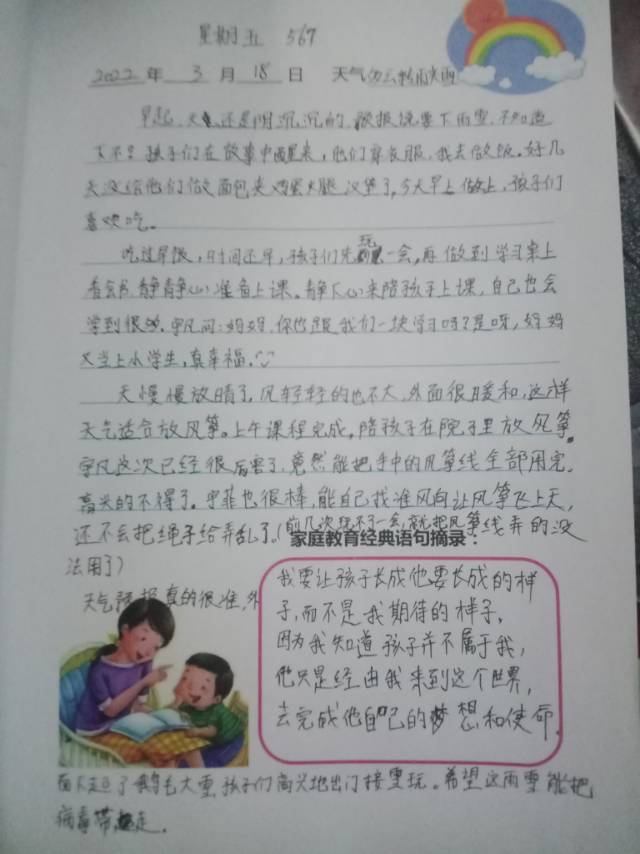 星期五 567
2022 年 3 月 18 日 天气 多云转雨夹雪
早起，天还是阴沉沉的，预报说要下雨雪，不知道
下不？孩子们在故事中醒来，他们穿衣服，我去做饭。好几
天没给他们做面包夹鸡蛋火腿汉堡了，今天早上做上，孩子们
喜欢吃。
吃过早饭，时间还早，孩子们先玩一会，再做到学习桌上
看会书，静静心准备上课。静下心来陪孩子上课，自己也会
学到很多。宇凡问：妈妈，你也跟我们一块学习吗？是呀，妈妈
又当上小学生，真幸福。
天慢慢放晴了，风轻轻的也不大，外面很暖和，这样
天气适合放风筝。上午课程完成，陪孩子在院子里放风筝。
宇凡这次已经很厉害了，竟然能把手中的风筝线全部用完，
高兴的不得了。宇菲也很棒，能自己找准风向让风筝飞上天，
还不会把绳子给弄乱了。（前几次玩不了一会，就把风筝线弄的没
法用了）
家庭教育经典语句摘录：
天气预报真的很准，外
我要让孩子长成他要长成的样
子，而不是我期待的样子，
因为我知道孩子并不属于我，
他只是经由我来到这个世界，
去完成他自己的梦想和使命。
面下起了鹅毛大雪，孩子们高兴地出门接雪玩。希望这雨雪能把
病毒带走。